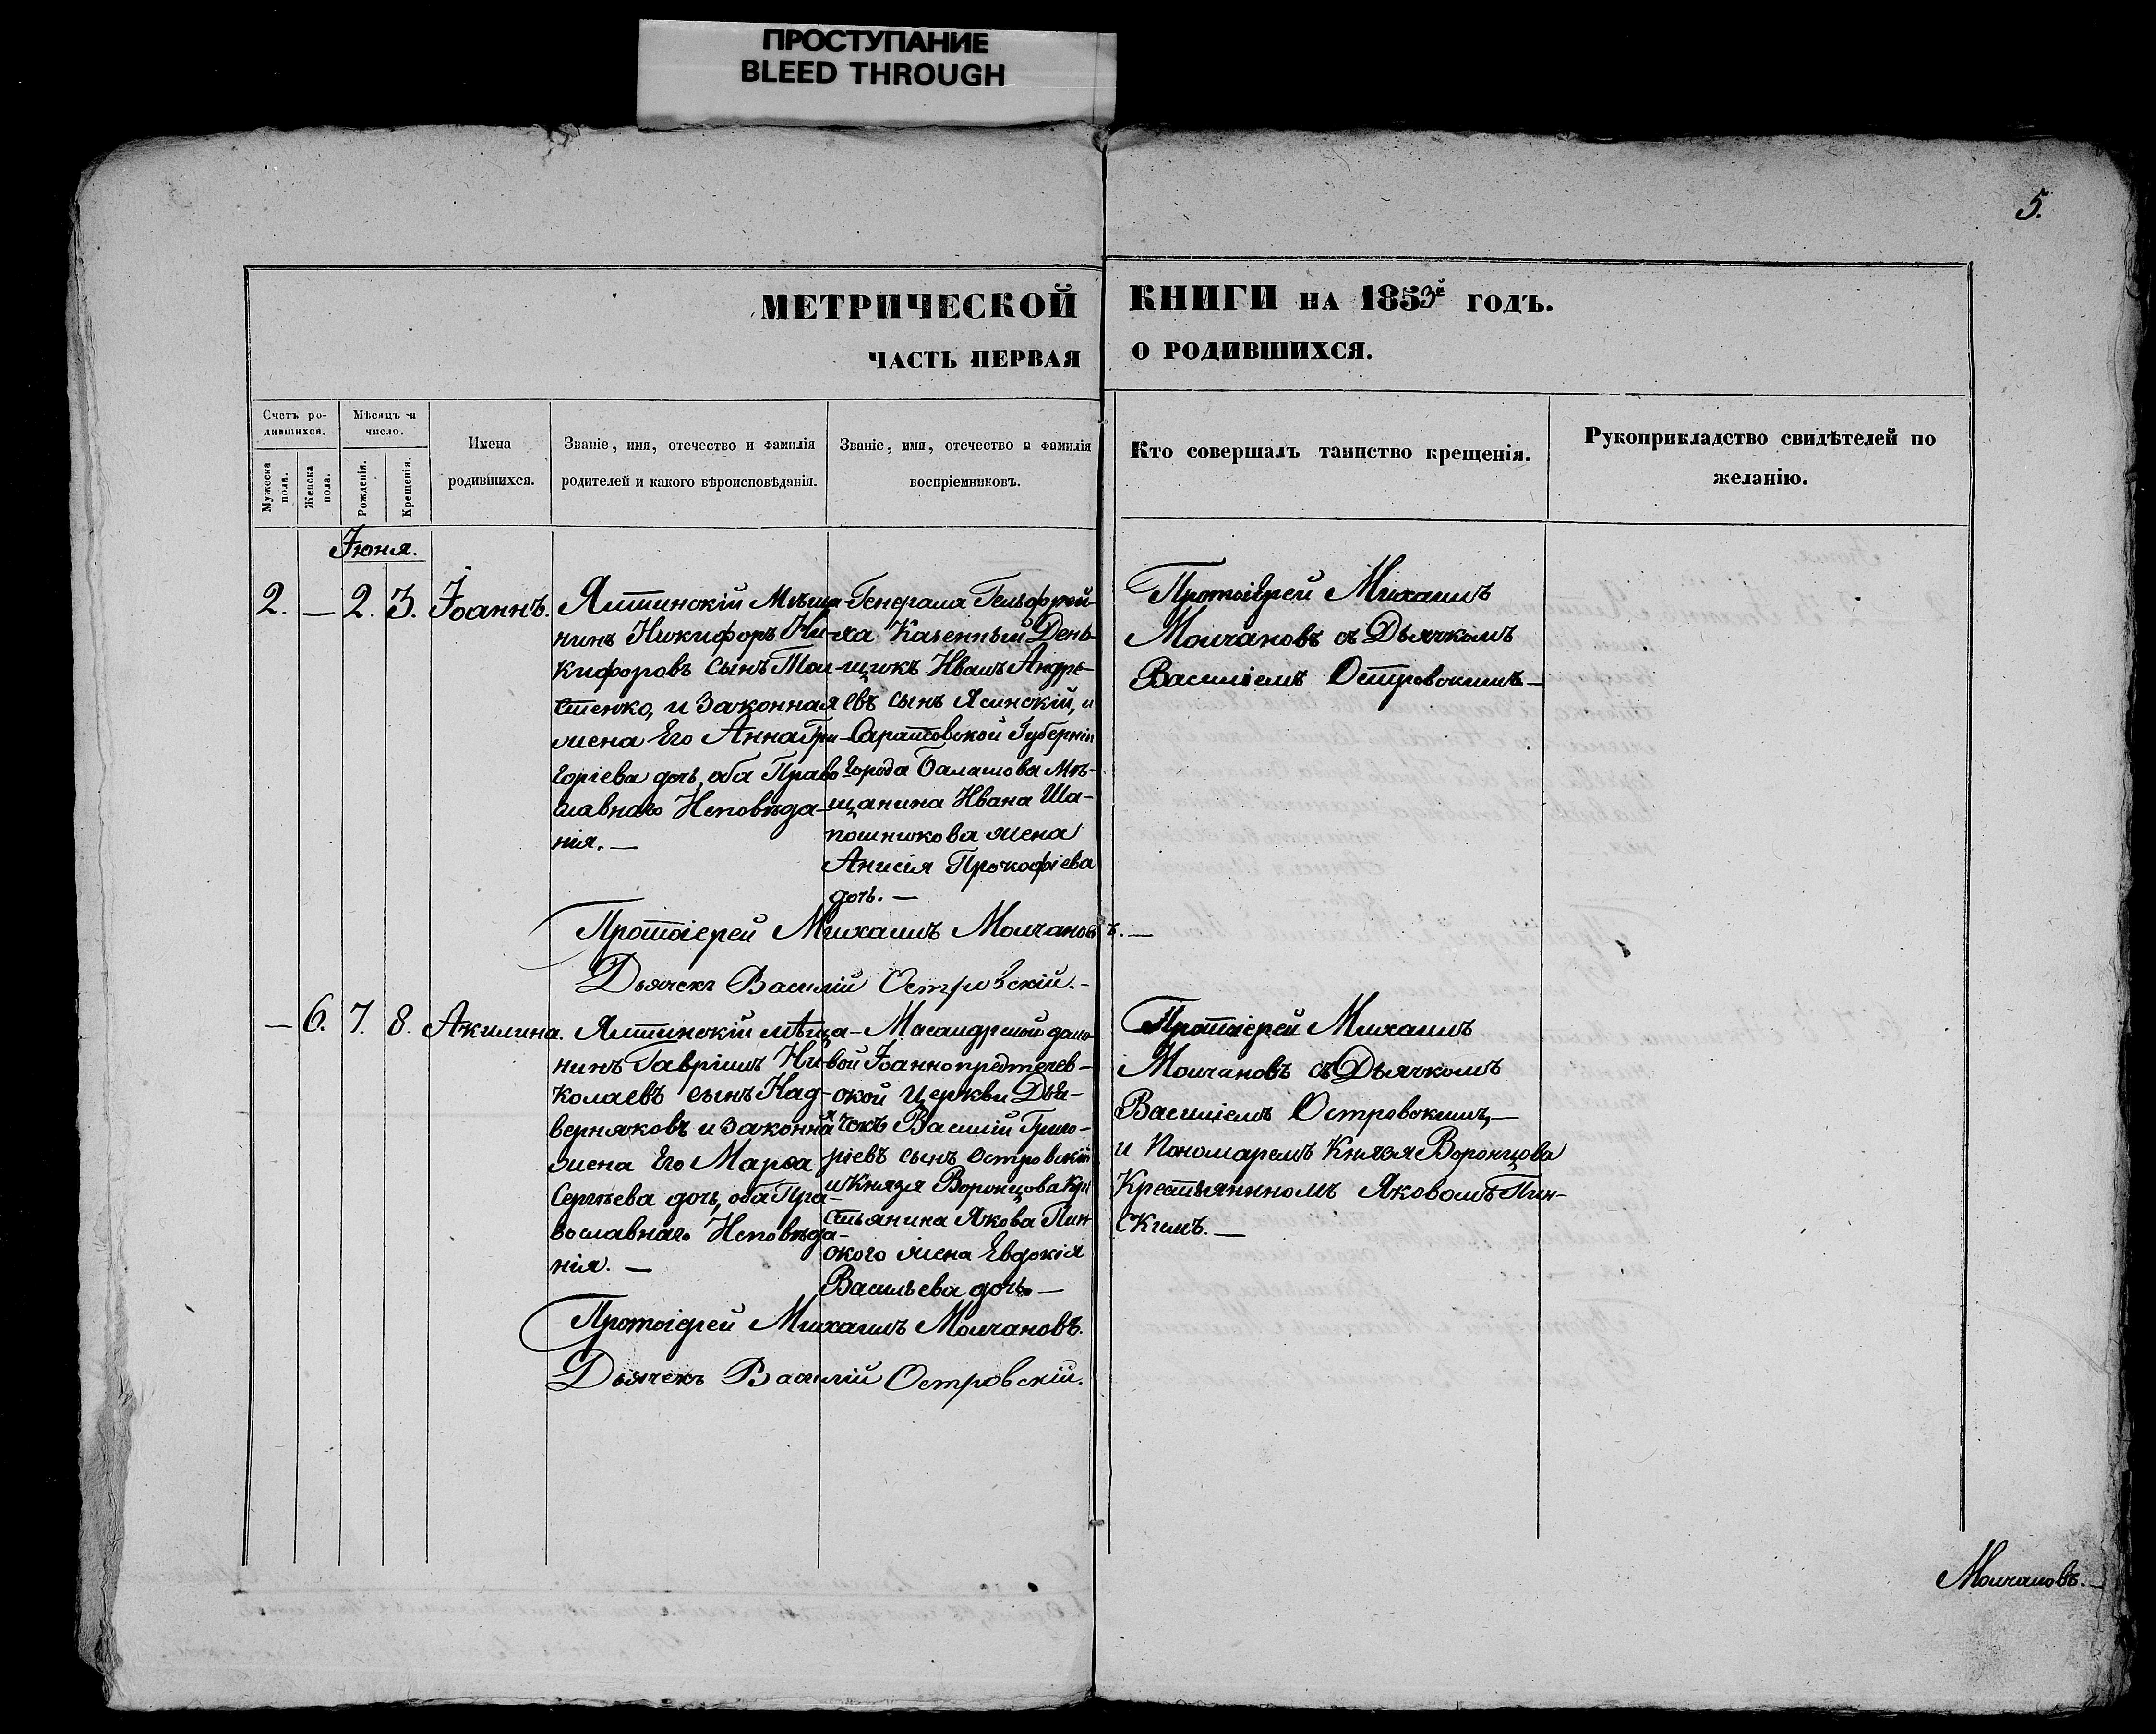 ПРОСТУПАНИЕ
BLEED THROUGH
5.
МЕТРИЧЕСКОЙ КНИГИ НА 1853й ГОДЪ.
ЧАСТЬ ПЕРВАЯ О РОДИВШИХСЯ.
Счетъ ро-
дившихся.
Мужеска
пола.
Женска
пола.
Мѣсяцъ и
число.
Рожденія.
Крещенія.
Имена
родившихся.
Званіе, имя, отечество и фамилія
родителей и какого вѣроисповѣданія.
Званіе, имя, отечество и фамилія
воспріемниковъ.
Кто совершалъ таинство крещенія.
Рукоприкладство свидѣтелей по
желанію.
Іюня.
2. — 2. 3. Іоаннъ.
Ялтинскій Мѣща-
нинъ Никифоръ Ни-
кифоровъ сынъ Тол-
стенко, и законная
жена Его Анна Гри-
горіева дочь, оба Право-
славнаго Исповѣда-
нія. —
Генерала Гельфрей-
ха Казенный День-
щикъ Иванъ Андре-
евъ сынъ Ясинскій, и
Саратовской Губерніи
Города Балашова Мѣ-
щанина Ивана Ша-
пошникова жена
Анисія Прокофіева
дочь. —
Протоіерей Михаилъ
Молчановъ съ Дьячкомъ
Василіемъ Островскимъ —
Протоіерей Михаилъ Молчановъ. —
Дьячекъ Василій Островскій. -
— 6. 7. 8. Акилина.
Ялтинскій мѣща-
нинъ Гавріилъ Ни-
колаевъ сынъ Над-
верняковъ и законная
жена Его Марѳа
Сергѣева дочь, оба Пра-
вославнаго Исповѣда-
нія. —
Масандрской домо-
вой Іоаннопредтечев-
ской Церкви Дья-
чекъ Василій Григо-
ріевъ сынъ Островскій
и Князя Воронцова Кре
стьянина Якова Пин
скаго жена Евдокія
Васильева дочь —
Протоіерей Михаилъ
Молчановъ съ Дьячкомъ
Василіемъ Островскимъ, —
и Пономаремъ Князя Воронцова
Крестьяниномъ Яковомъ Пин-
скимъ. —
Протоіерей Михаилъ Молчановъ.
Дьячекъ Василій Островскій.
Молчановъ. —